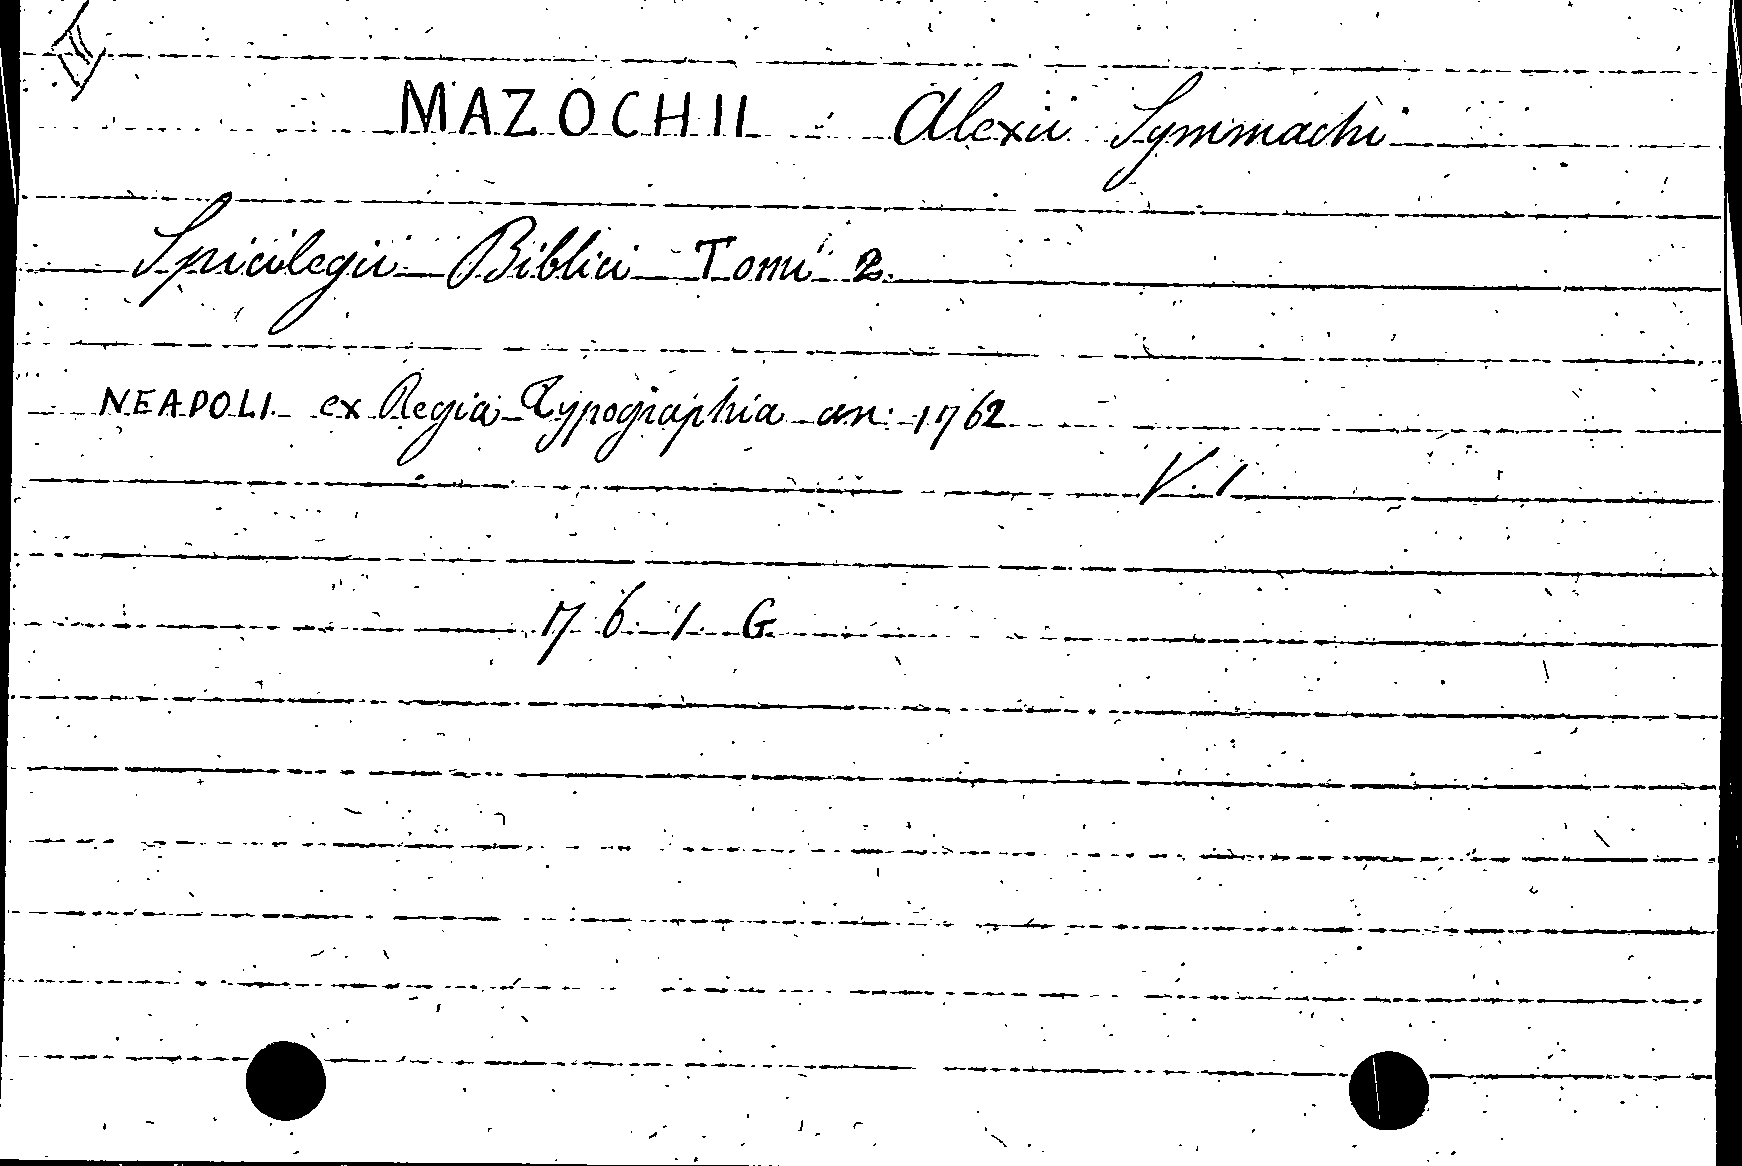 MAZOCHII Alexii Symmachi
Spicilegii Biblici Tomi 2.
NEAPOLI ex Regia Typographia an: 1762
V. 1
1 7 6 1 G